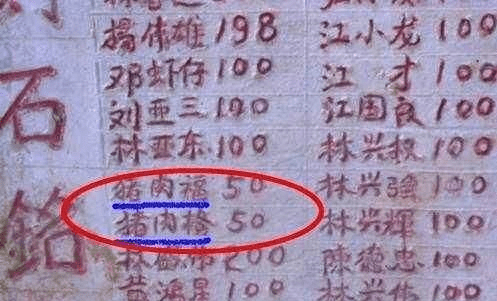 石
伟雄 198 江小龙 100
邓虾仔 100 江才 100
刘亚三 100 江国良 100
林亚东 100 林兴权 100
猪肉福 50 林兴強 100
猪肉 50 林兴輝 100
林 200 陳德忠 100
黄鸿星 100 林 100